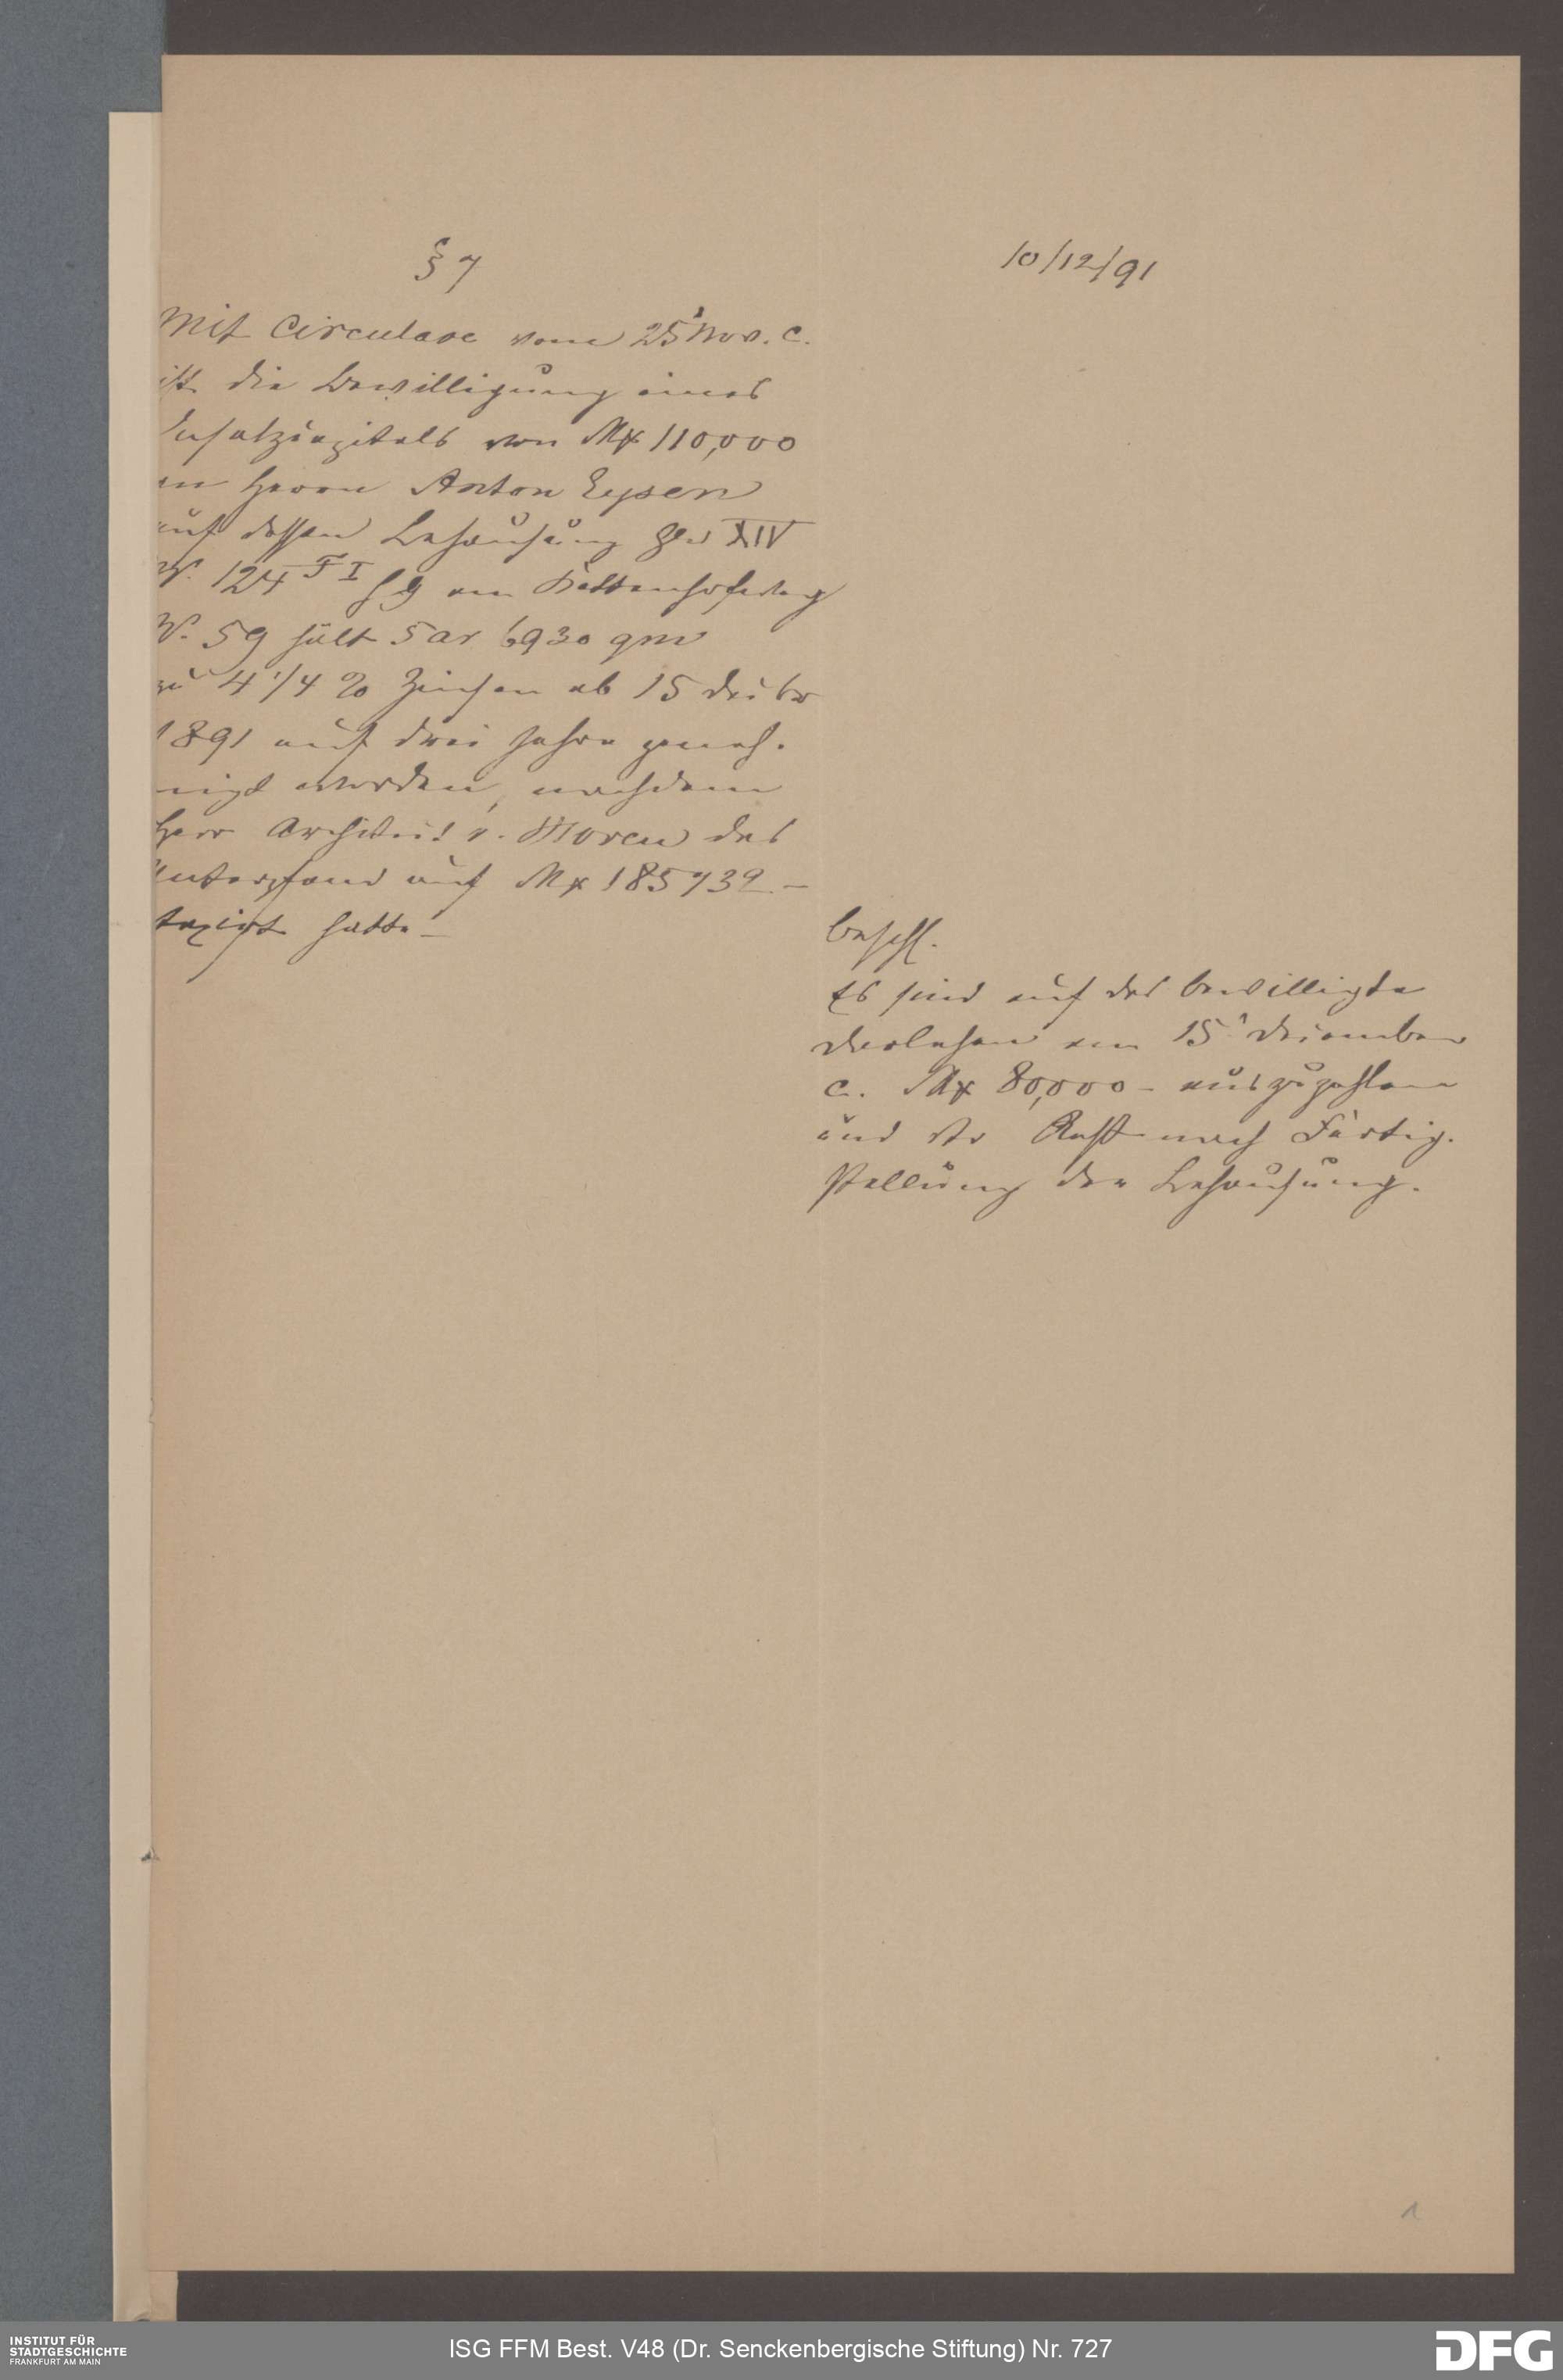 § 7
10/12/91
Mit Circulare vom 25' Nov. c.
ist die Bewilligung eines
Insatzcapitals von Mk 110,000
an Herrn Anton Eysen
auf dessen Behausung Gew XIV
N. 124 F I am Kettenhofweg
N. 59 hält 5 ar 6930 qm
zu 4 1/4 % Zinsen ab 15 Decbr
1891 auf drei Jahre geneh-
migt worden, nachdem
Herr Architect v. Hoven das
Unterpfand auf Mk 185739.-
taxirt hatte -
beschl.
Es sind auf das bewilligte
Darlehen am 15' December
c. Mk 80,000 - auszuzahlen
und der Rest nach Fertig-
stellung der Behausung.
1
INSTITUT FÜR
STADTGESCHICHTE
FRANKFURT AM MAIN
ISG FFM Best. V48 (Dr. Senckenbergische Stiftung) Nr. 727
DFG